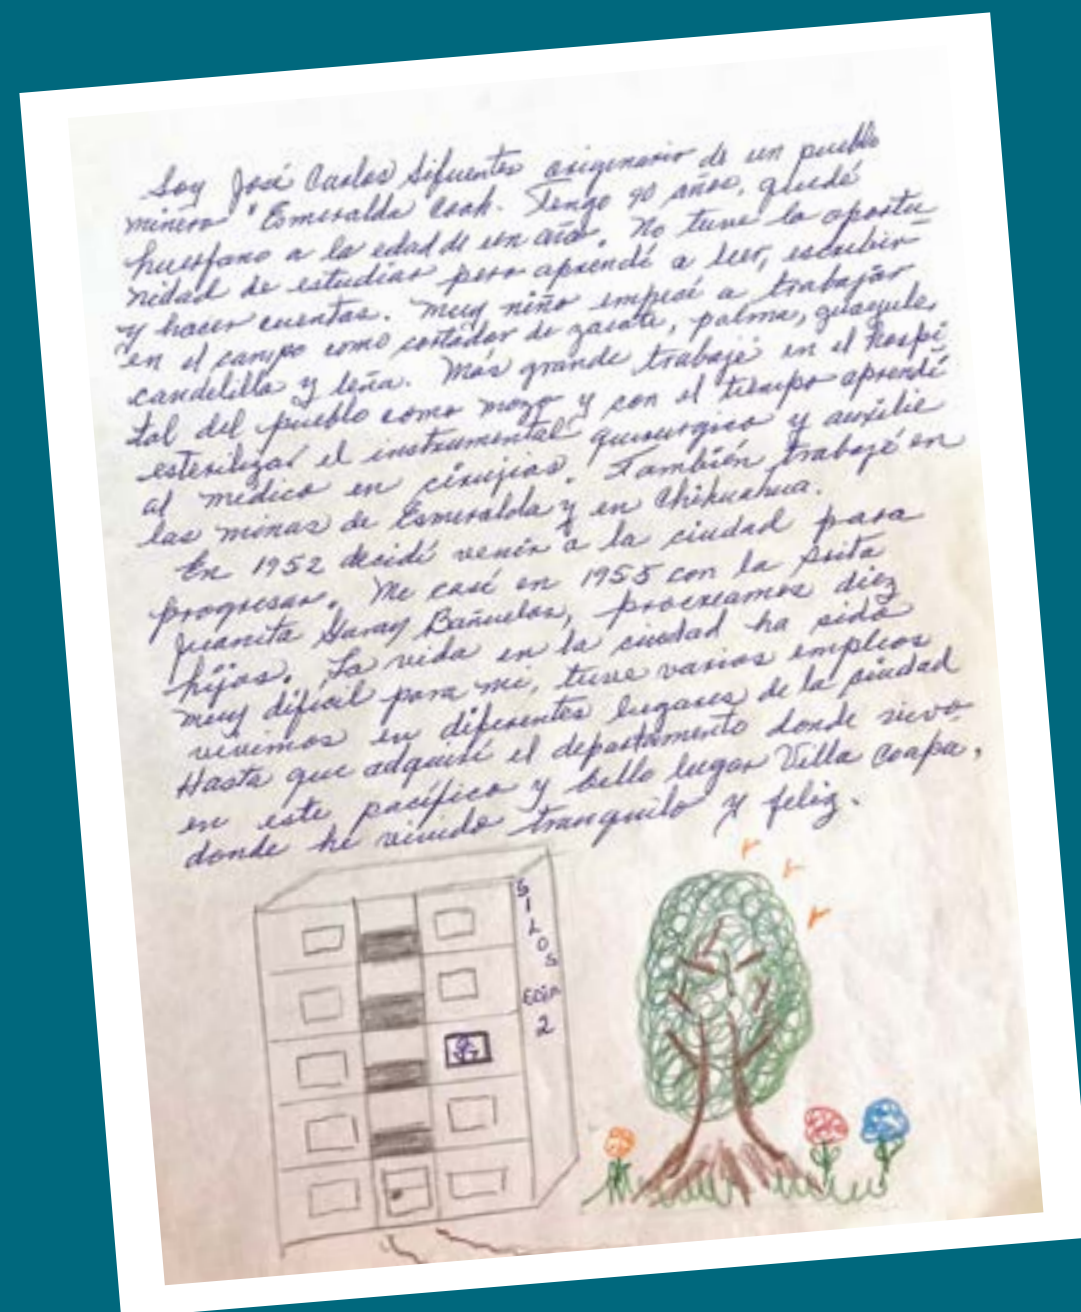 Soy José Carlos Sifuentes originario de un pueblo
minero "Esmeralda Coah. Tengo 90 años, quedé
huerfano a la edad de un año. No tuve la oportu
nidad de estudiar pero aprendí a leer, escribir
y hacer cuentas. Muy niño empecé a trabajar
en el campo como cortador de zacate, palma, guayule,
candelilla y leña. Más grande trabajé en el hospi
tal del pueblo como mozo y con el tiempo aprendí
esterilizar el instrumental quirurgico y auxilie
al médico en cirujias. También trabajé en
las minas de Esmeralda y en Chihuahua.
En 1952 decidí venir a la ciudad para
progresar. Me casé en 1955 con la Srita
Juanita Garay Bañuelos, procreamos diez
hijos. La vida en la ciudad ha sido
muy dificil para mi, tuve varios empleos
vivimos en diferentes lugares de la ciudad
Hasta que adquirí el departamento donde vivo
en este pacífico y bello lugar Villa Coapa,
donde he vivido tranquilo y feliz.
SILOS
EDIF
2